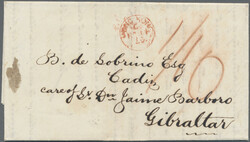 1/6
B. de Sobrino Esq
Cadiz
care of Sr. Dn Jaime Barboro
Gibraltar